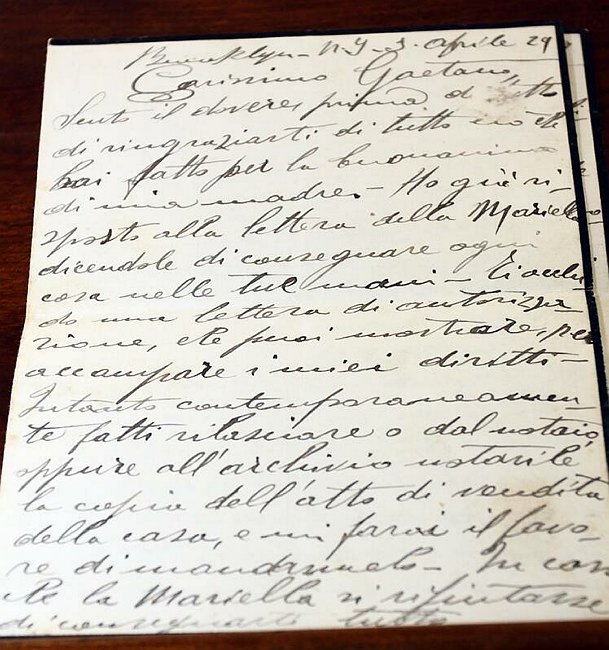 Brooklyn - N.Y - 3. aprile 29
Carissimo Gaetano,
Sento il dovere, prima di tutto
di ringraziarti di tutto ciò che
hai fatto per la buonanima
di mia madre. - Ho già ri-
sposto alla lettera della Mariella
dicendole di consegnare ogni
cosa nelle tue mani - Ti acclu-
do una lettera di autorizza-
zione, che puoi mostrare, per
accampare i miei diritti -
Intanto contemporaneamen-
te fatti rilasciare o dal notaio,
oppure all'archivio notarile
la copia dell'atto di vendita
della casa, e mi farai il favo-
re di mandarmelo - In caso
che la Mariella si rifiutasse
di consegnarti tutto